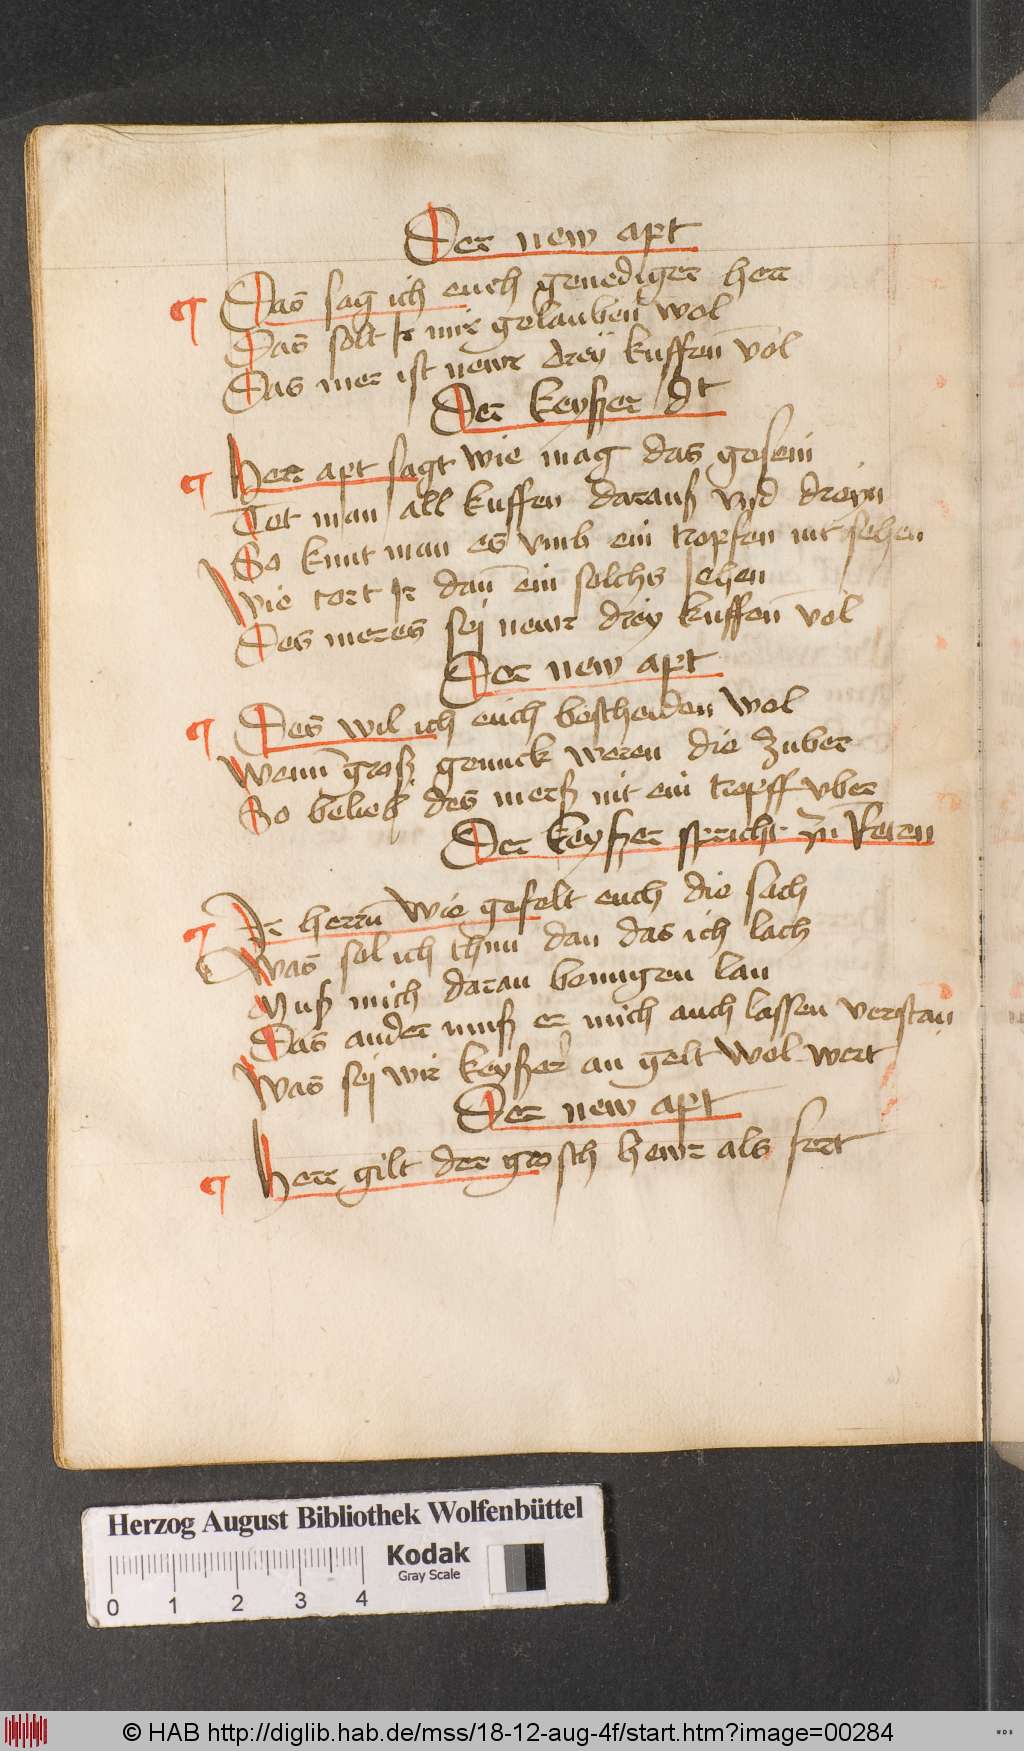 Der new apt
¶ Das sag ich euch genediger herr
Das solt ir mir gelauben wol
Das mer ist newr drey kuffen vol
Der keyßer dt
¶ Herr apt sagt wie mag das gesein
Tet man all kuffen darauß vnd dreyn
So kunt man es vmb ein tropfen nit sehen
Wie tort ir dan ein solchs iehen
Des meres sey newr drey kuffen vol
Der new apt
¶ Des wil ich euch bescheiden wol
Wenn groß genuck weren die zuber
So belieb des merß nit ein tropff vber
Der keyßer spricht zu Reten
¶ Ir herrn wie gefelt euch die sach
Was sol ich thun dan das ich lach
Muß mich daran benugen lan
Das ander muß er mich auch lassen verstan
Was sey wir keyßer an gelt wol wert
Der new apt
¶ Herr gilt der grosch hewr als fert
Herzog August Bibliothek Wolfenbüttel
Kodak
Gray Scale
0 1 2 3 4
© HAB http://diglib.hab.de/mss/18-12-aug-4f/start.htm?image=00284